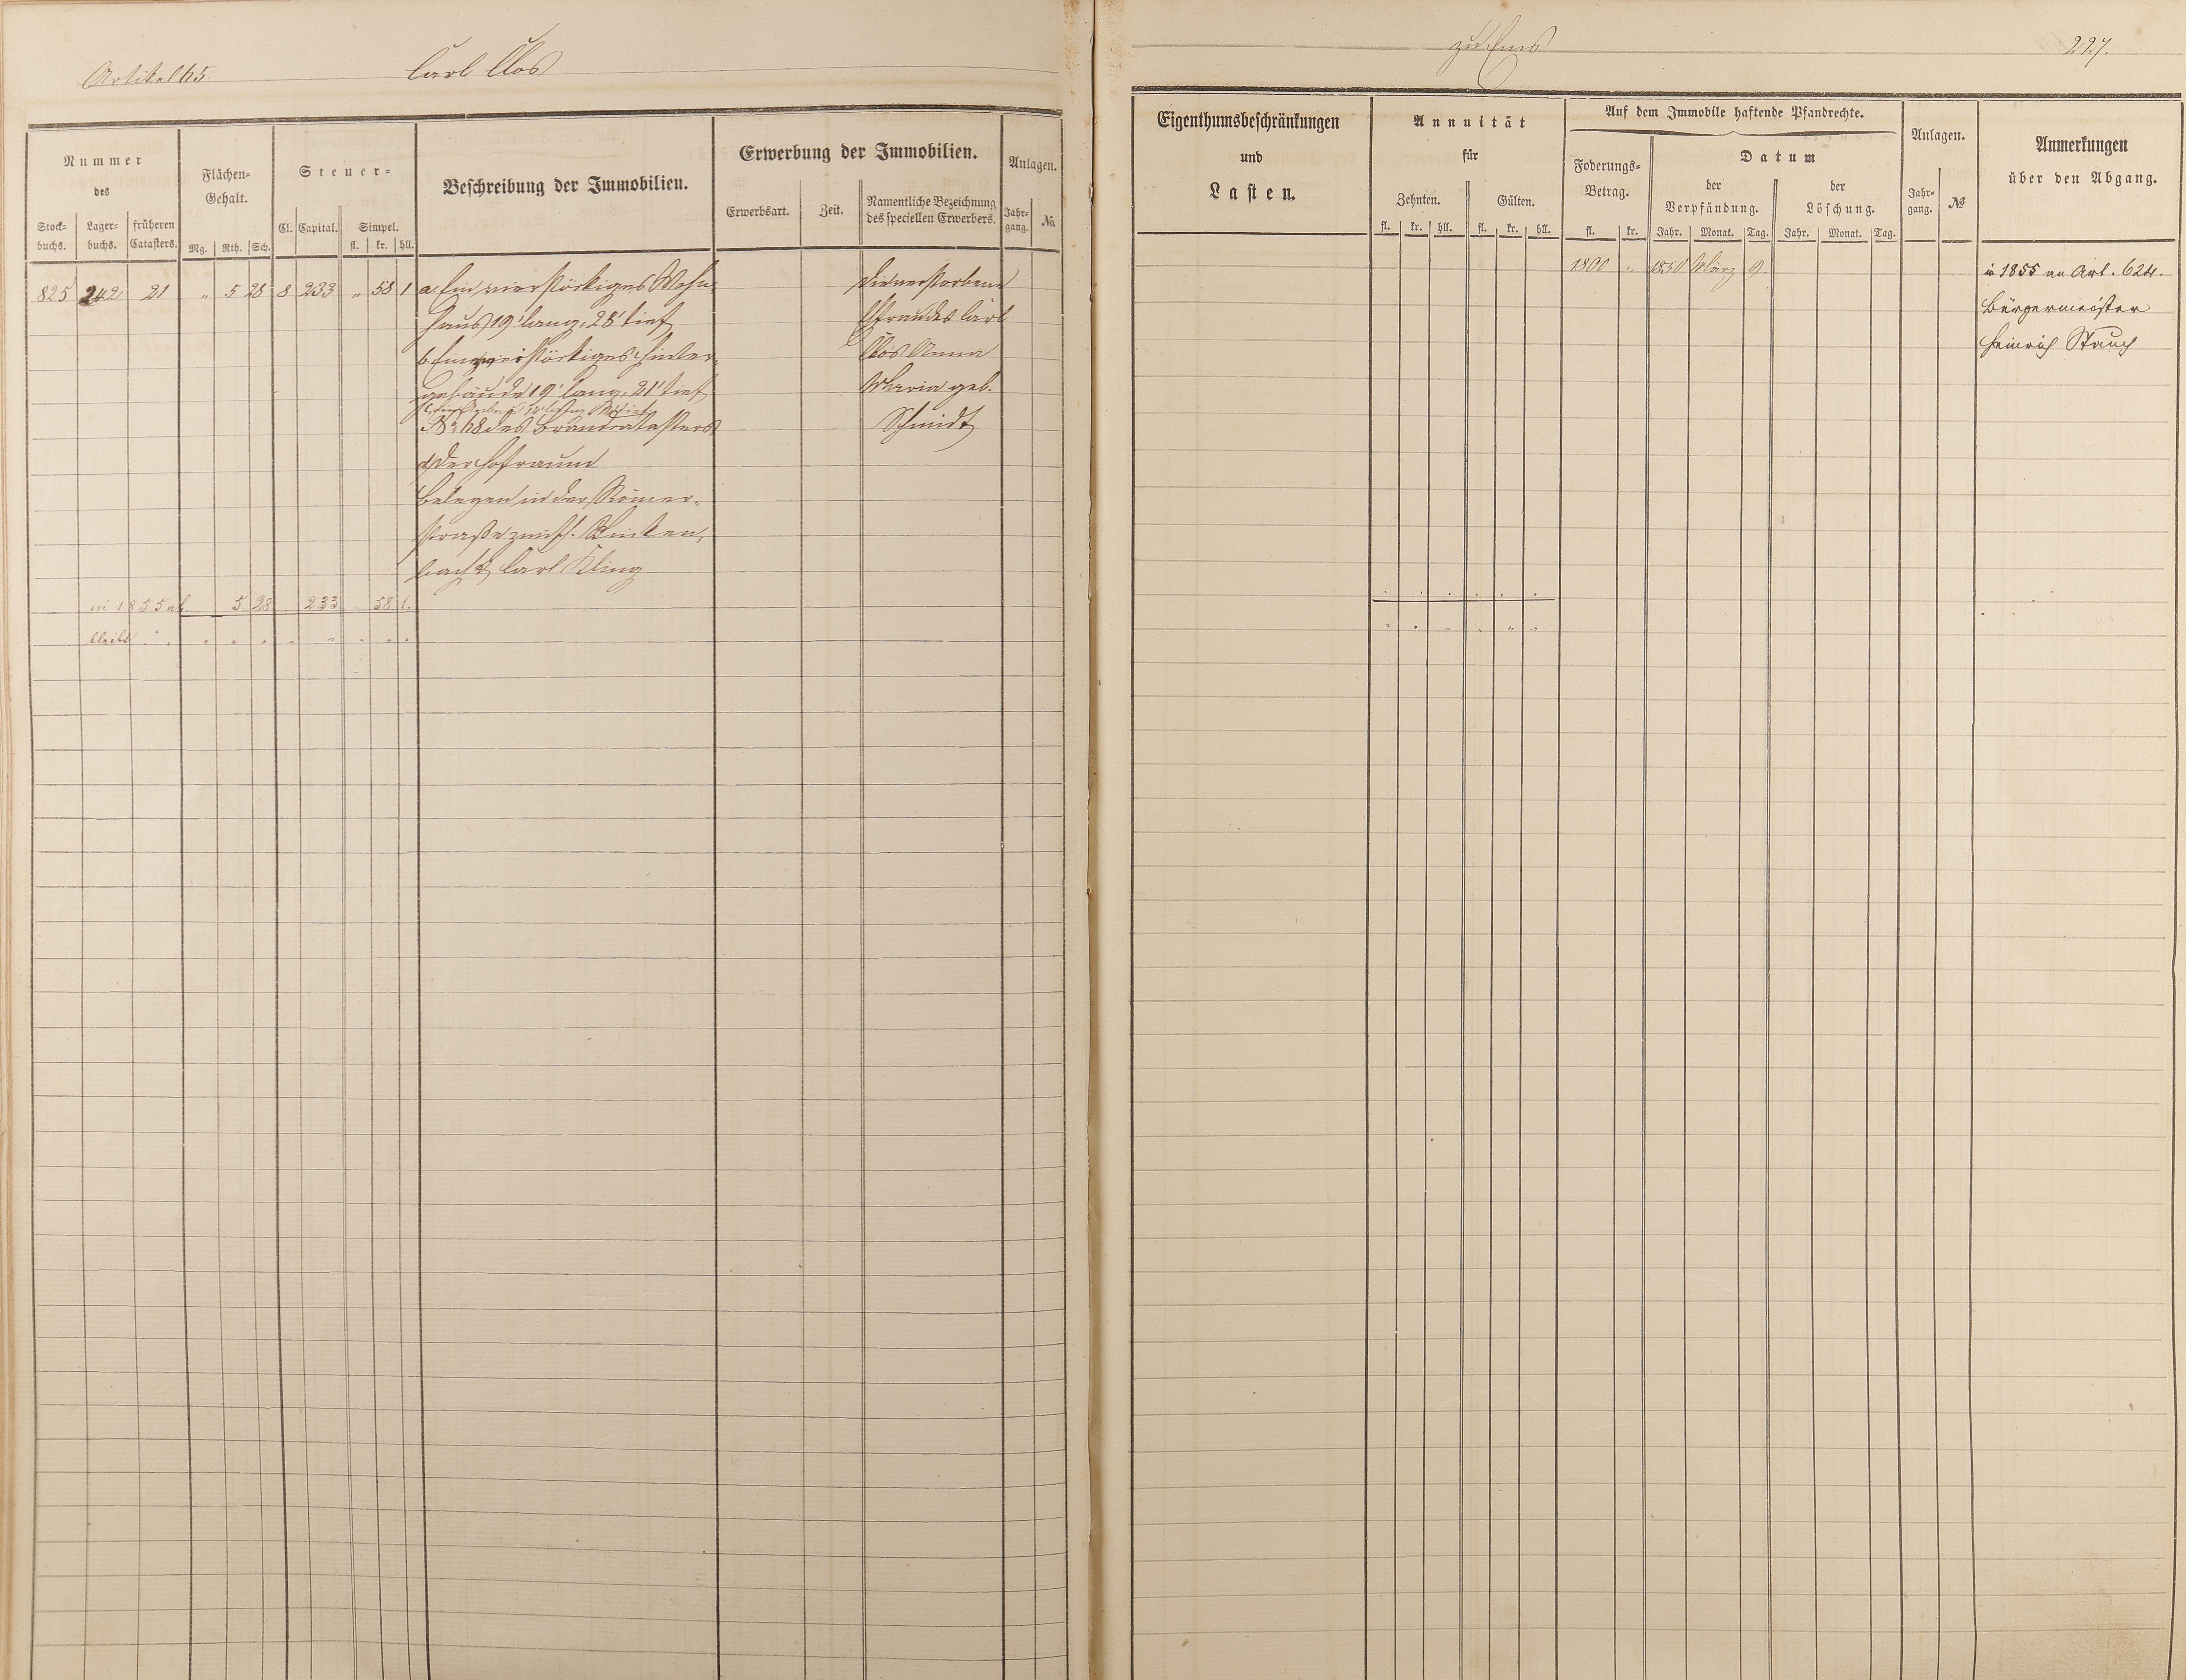 Artikel 65. Carl Clos
Nummer
des
Stock-
buchs. Lager-
buchs. früheren
Catasters.
Flächen-
Gehalt.
Mg. Rth. Sch.
Steuer-
Cl. Capital. Simpel.
fl. kr. hll.
Beschreibung der Immobilien.
Erwerbung der Immobilien.
Erwerbsart. Zeit. Namentliche Bezeichnung
des speciellen Erwerbers.
Anlagen.
Jahr-
gang. No.
825 242 21 " 5 28 8 233 " 58 1 a, Ein vierstöckiges Wohn- Die verstorbene
haus 19' lang, 28' tief Ehfrau des Carl
b, Ein zweistöckiges Hinter- Clos Anna
gebäude 19' lang, 21' tief Maria geb.
No. 68 des Brandcatasters Schmidt
d, der Hofraum
belegen in der Römer-
straße zwisch. Winken-
bach & Carl Kling
in 1855 ab 5 28 233 58 1.
bleibt " " " " " " " " " "
zu Ems 227.
Eigenthumsbeschränkungen
und
Lasten.
Annuität
für
Zehnten. Gülten.
fl. kr. hll. fl. kr. hll.
Auf dem Immobile haftende Pfandrechte.
Foderungs-
Betrag.
fl. kr.
Datum
der
Verpfändung. der
Löschung.
Jahr. Monat. Tag. Jahr. Monat. Tag.
Anlagen.
Jahr-
gang. No
Anmerkungen
über den Abgang.
1800 " 1850 März 9 in 1855 an Art. 624.
Bürgermeister
Heinrich Stauch